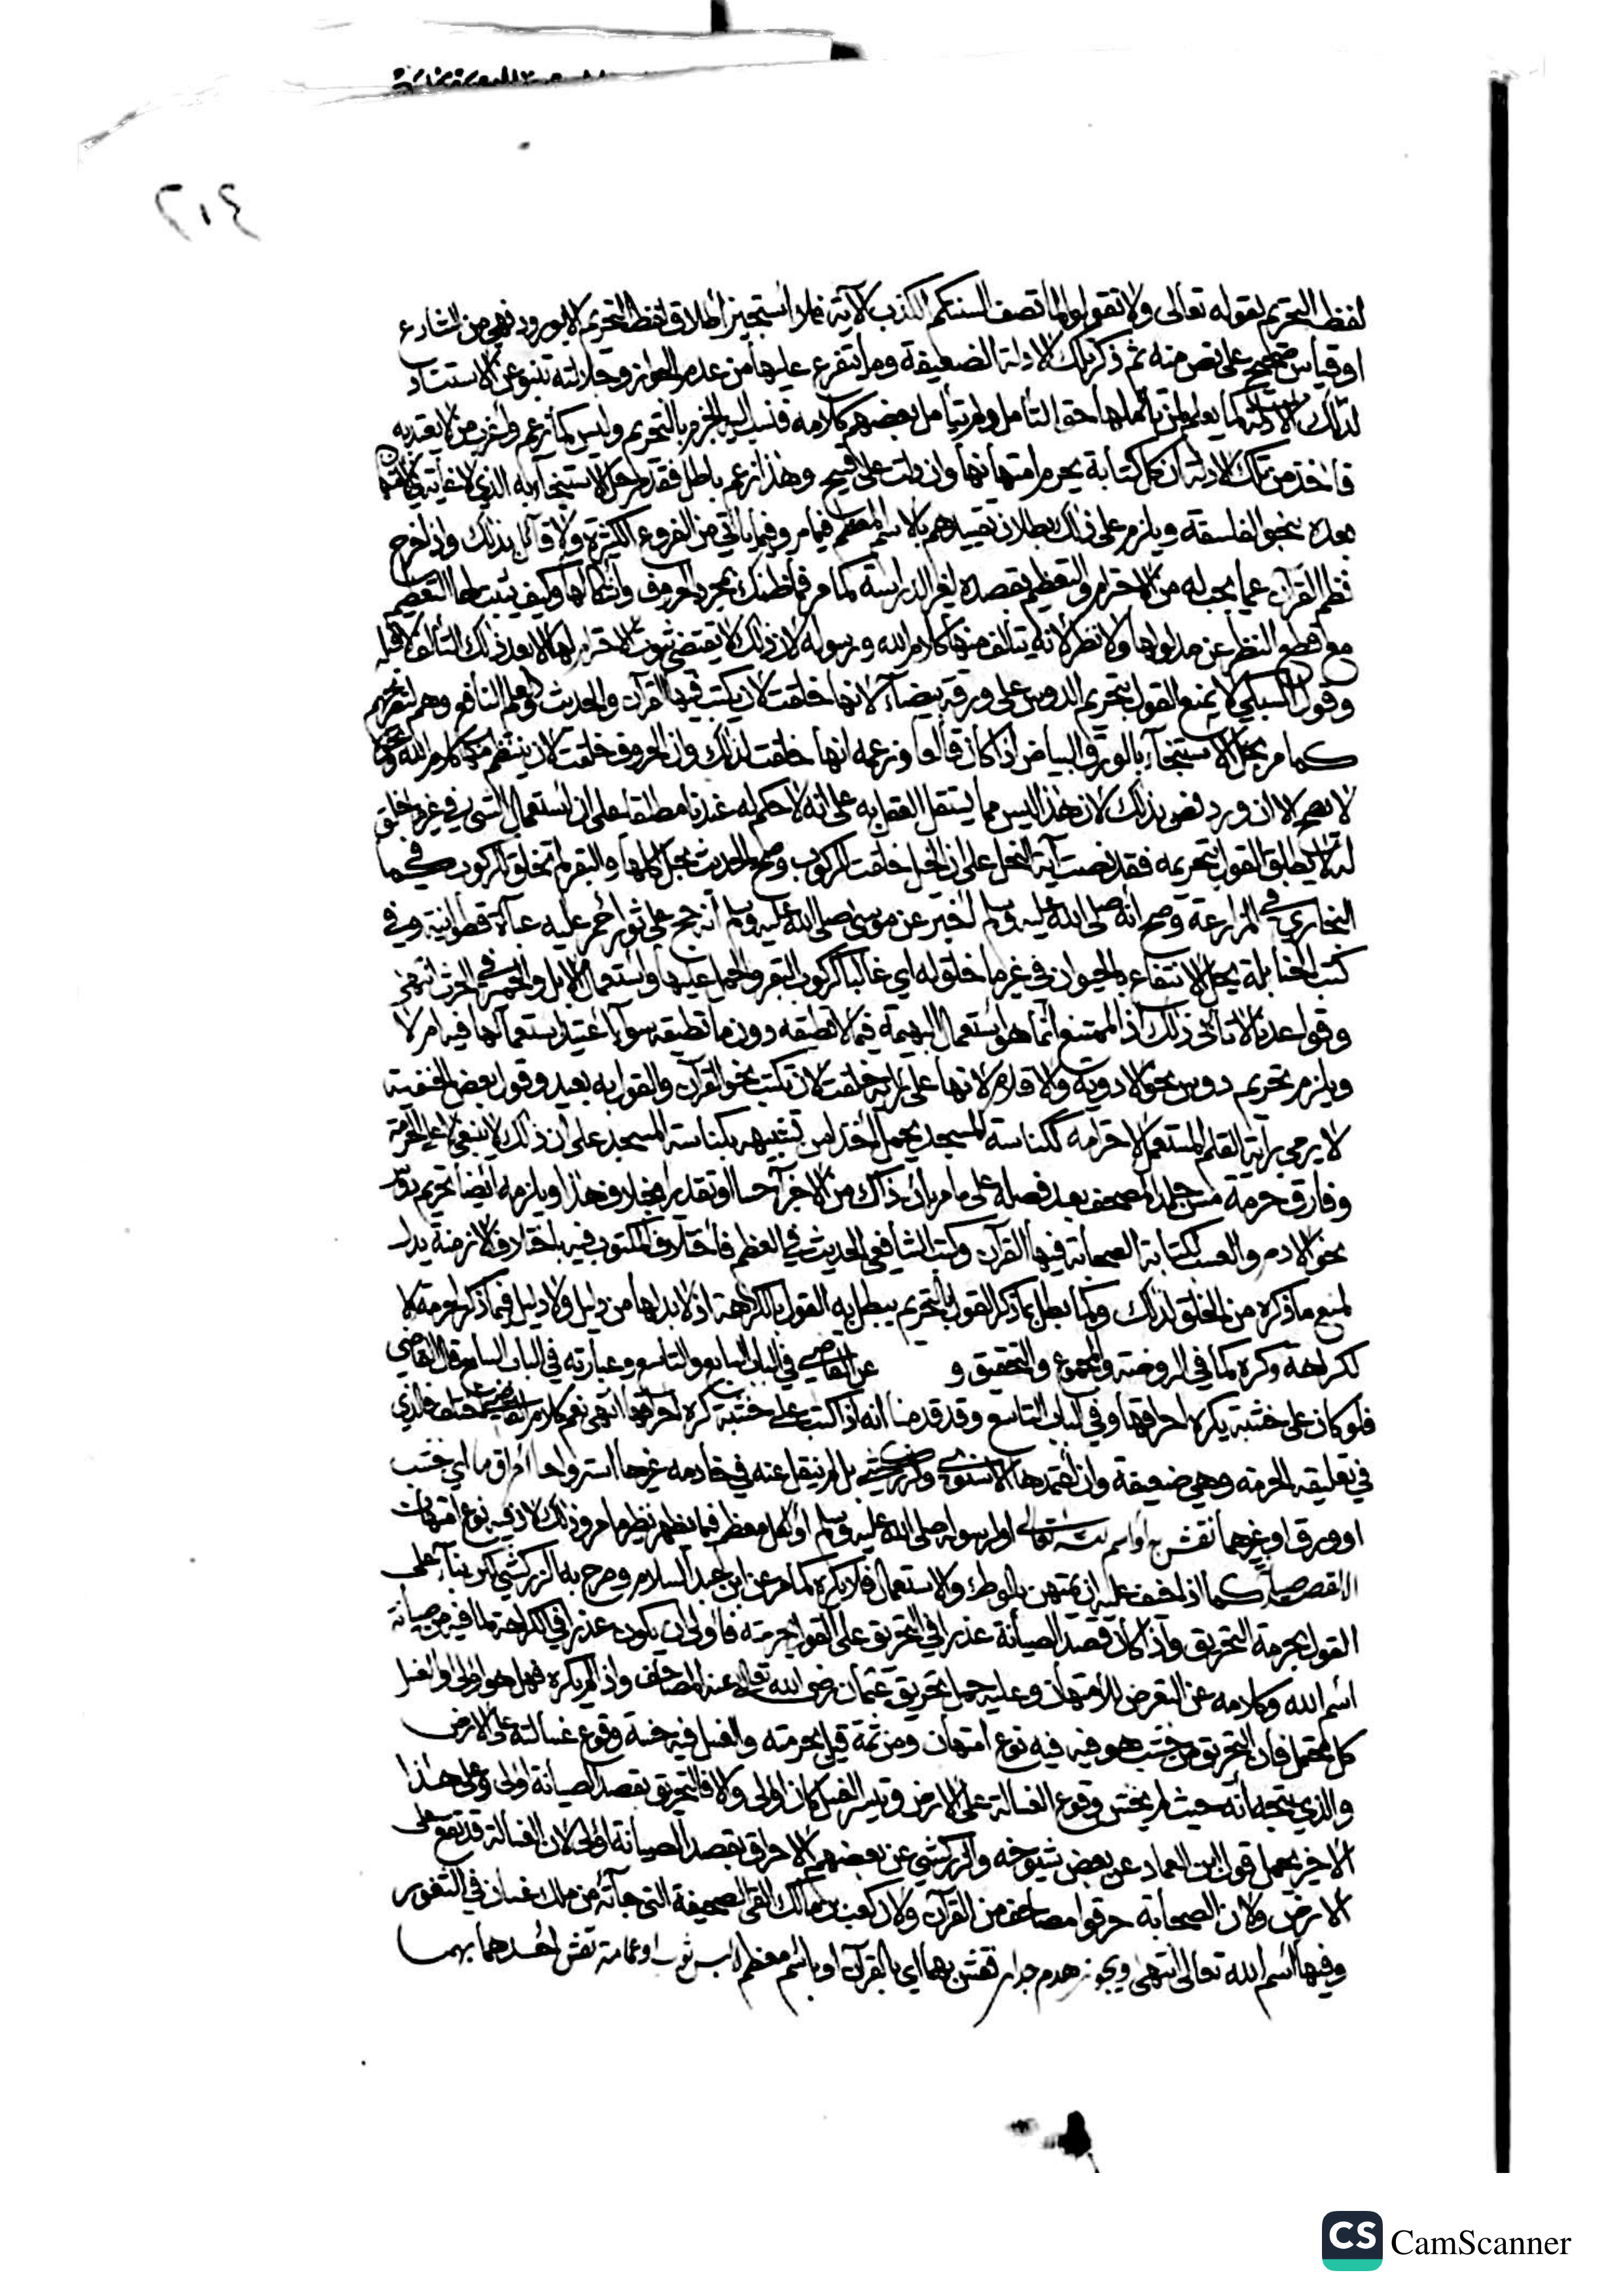 ٢١٤
لفظ التحريم لقوله تعالى ولا تقولوا لما تصف السنتكم الكذب الآية فلا أستجيز اطلاق لفظ التحريم الا بورود نهي من الشارع
او قياس صحيح على نص منه ثم ذكر تلك الادلة الضعيفة وما يتفرع عليها من عدم الجواز وجلالته تنبو عن الاستناد
لتلك الادلة كما يعلم لمن تأملها حق التأمل ولم يتأمل بعضهم كلامه فنسب اليه الجزم بالتحريم وليس كما زعم وأغرب من لا يعتد به
فاخذ من تلك الادلة ان كل كتابة يحرم امتهانها وان دلت على قبيح وهذا زعم باطل فقد مر حل الاستنجاء به الذي لا غاية
بعده بنحو الفلسفة ويلزم على ذلك بطلان تقييدهم بالاسم المعظم فيما مر وفيما يأتي من الفروع الكثيرة ولا قائل بذلك واذا خرج
نظم القرآن عما يجب له من الاحترام والتعظيم بقصده لغير الدراسة كما مر فما ظنك بمجرد الحروف وأشكالها وكيف يثبت لها التعظيم
مع قطع النظر عن مدلولها ولا نظر لانه يتألف منها كلام الله ورسوله لان ذلك لا يقتضي ثبوت الاحترام لها الا بعد ذلك التألف لا قبله
وقول السبكي لا يمنع القول بتحريم الدوس على ورقة بيضاء لانها خلقت لان يكتب فيها القرآن والحديث والعلم النافع وهم لتصريحهم
كما مر بحل الاستنجاء بالورق البياض اذا كان قالعا وزعمه انها خلقت لذلك وان الحروف خلقت لان ينتظم منها كلام الله
لا يصح الا ان ورد نص بذلك لان هذا ليس مما يستقل العقل به على انه لا حكم له عندنا مطلقا على ان استعمال الشيء في غير ما خلق
له لا يطلق القول بتحريمه فقد نصت آية النحل على ان الخيل خلقت للركوب وصح الحديث بحل اكلها والبقر لم تخلق للركوب كما في
البخاري في المزارعة وصح انه صلى الله عليه وسلم أخبر عن موسى صلى الله عليه وسلم أنه حج على ثور أحمر عليه عباءة قطوانية وفي
كتب الحنابلة يحل الانتفاع بالحيوان في غير ما خلق له اي غالبا كركوب البقر والحمل عليها واستعمال الابل والحمير في الحرث انتهى
وقواعدنا لا تأبى ذلك اذ الممتنع انما هو استعمال البهيمة فيما لا تطيقه دون ما تطيقه سواء أعتيد استعمالها فيه ام لا
ويلزم تحريم دوس نحو الادوية والاقلام لانها على رأيه خلقت لان تكتب نحو القرآن والقول به بعيد وقول بعض الحنفية
لا يرمى براية القلم المستعمل لاحترامه ككناسة المسجد يحمل أخذا من تشبيهه بكناسة المسجد على ان ذلك لا ينبغي لا على الحرمة
وفارق حرمة مس جلد المصحف بعد فصله على ما مر بان ذاك من الاجزاء حسا او تقديرا بخلاف هذا ويلزمه أيضا تحريم دوس
نحو الادم والعسب لكتابة الصحابة فيها القرآن وكتب الشافعي الحديث في العظم فاختلاف المكتوب فيه باختلاف الازمنة يدل
لمنع ما ذكره من الخلق لذلك وكما بطل بما ذكر القول بالتحريم يبطل به القول بالكراهة اذ لا بد لها من دليل ولا دليل فيما ذكر لحرمة ولا
لكراهة وكره كما في الروضة والمجموع والتحقيق و عن القاضي في الباب السابع والتاسع وعبارته في الباب السابع قال القاضي
فلو كان على خشبة يكره احراقها وفي الباب التاسع وقد قدمنا أنه اذا كتب على خشبة كره احراقها انتهى نعم كلام القاضي مختلف فالذي
في تعليقه الحرمة وهي ضعيفة وان اعتمدها الاسنوي والزركشي بل لم ينقل عنه في خادمه غيرها استرواحا احراق ما اي خشب
او ورق او غيرهما نقش به أو اسم لله تعالى او لرسوله صلى الله عليه وسلم او لكل معظم فيما يظهر نظير ما مر وذلك لان فيه نوع امتهان
الا لقصد صيانة كما اذا خيف عليه ان يمتهن بالوطء والاستعمال فلا يكره كما مر عن ابن عبد السلام وصرح به الزركشي لكن بناء على
القول بحرمة التحريق واذا كان قصد الصيانة عذرا في التحريق على القول بحرمته فاولى ان يكون عذرا في الكراهة لما فيه من صيانة
اسم الله وكلامه عن التعرض للامتهان وعليه حمل تحريق عثمان رضي الله تعالى عنه المصاحف واذا لم يكره فهل هو اولى او الغسل
كل محتمل فان التحريق من حيث هو فيه نوع امتهان ومن ثمة قيل بحرمته والغسل فيه خشية وقوع غسالته على الارض
والذي يتجه أنه حيث لم يخش وقوع الغسالة على الارض وتيسر الغسل كان اولى والا فالتحريق بقصد الصيانة اولى وعلى هذا
الاخير يحمل قول ابن العماد عن بعض شيوخه والزركشي عن بعضهم الاحراق بقصد الصيانة اولى لان الغسالة قد تقع على
الارض ولان الصحابة حرقوا مصاحف من القرآن ولان كعب بن مالك القى الصحيفة التي جاءته من ملك غسان في التنور
وفيها اسم الله تعالى انتهى ويجوز هدم جدار نقش بهما اي بالقرآن او باسم معظم ولبس ثوب او عمامة نقش احدهما بهما
CS CamScanner